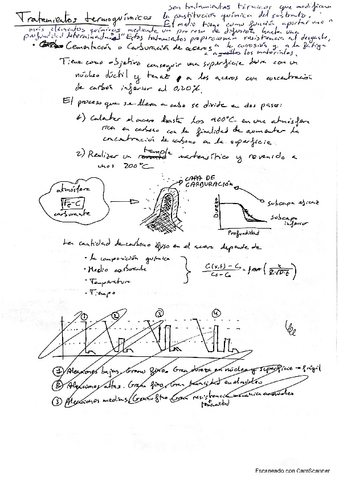 Tratamientos termoquímicos
son tratamientos térmicos que modifican
la constitución química del sustrato.
El medio tiene como función aportar uno o
más elementos químicos mediante un proceso de difusión hasta una
profundidad determinada. Estos tratamientos proporcionan resistencia al desgaste,
a la corrosión y a la fatiga
a los materiales.
Cementación o Carburación de aceros
Tiene como objetivo conseguir una superficie dura con un
núcleo dúctil y tenaz a los aceros con concentración
de carbono inferior al 0,20%.
El proceso que se lleva a cabo se divide en dos pasos:
1) Calentar el acero hasta los 900°C en una atmósfera
rica en carbono con la finalidad de aumentar la
concentración de carbono en la superficie.
2) Realizar un temple martensítico y revenido a
unos 200°C
CAPA DE
CARBURACIÓN
atmósfera
Fe-C
carburante
Dureza
subcapa eficaz
subcapa
inferior
Profundidad
La cantidad de carbono en el acero depende de
• La composición química
• Medio carburante
• Temperatura
• Tiempo
1 2 3 4
1 Aleaciones bajas. Grano fino. Gran dureza en núcleo y superficie → frágil
2 Aleaciones altas. Grano fino. Gran tenacidad en el núcleo
3 Aleaciones medias. Grano fino. Gran resistencia mecánica en núcleo
Escaneado con CamScanner